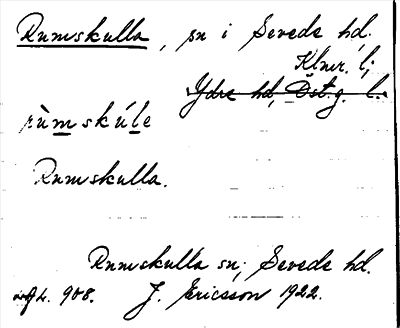 Rumskulla, sn i Sevede hd.
Klmr. l;
Ydre hd, Östg. l.
rùmskúle
Rumskulla.
Rumskulla sn; Sevede hd.
908. J. Ericsson 1922.